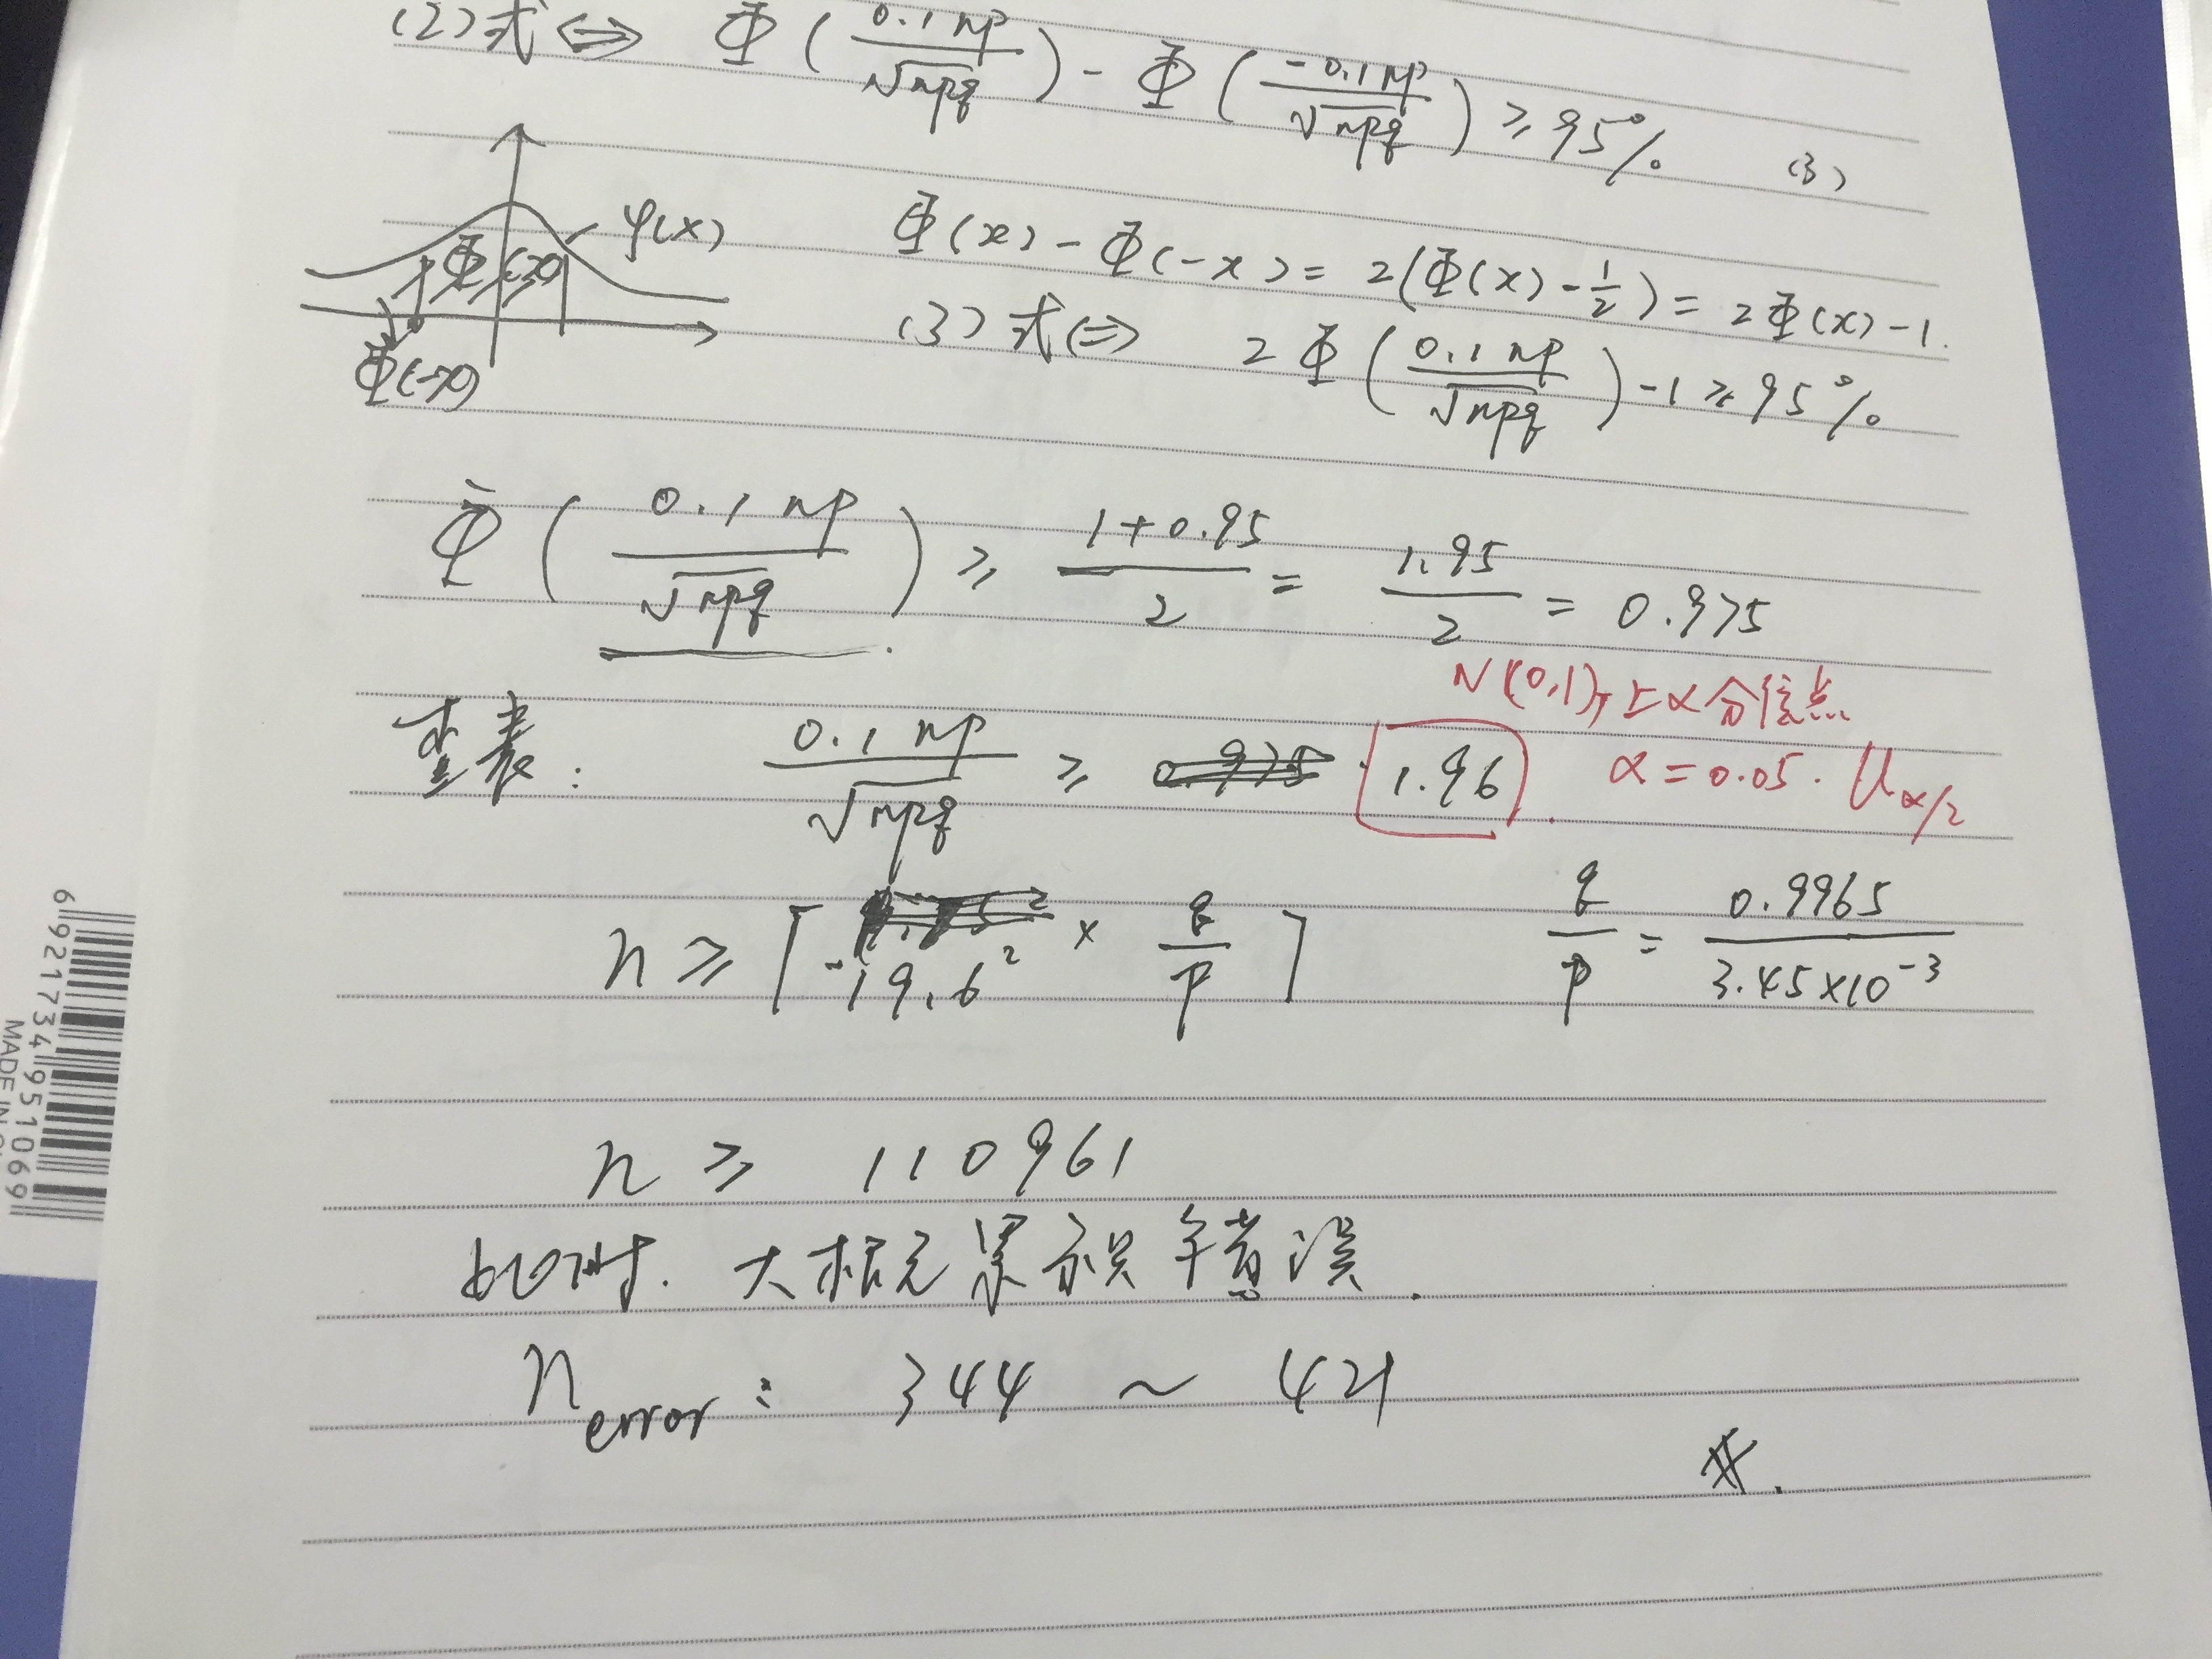 (2)式 ⇔ Φ(0.1np/√npq) - Φ(-0.1np/√npq) ≥ 95% (3)
φ(x)
Φ(x)
Φ(-x)
Φ(x) - Φ(-x) = 2(Φ(x) - 1/2) = 2Φ(x) - 1.
(3)式 ⇔ 2Φ(0.1np/√npq) - 1 ≥ 95%
Φ(0.1np/√npq) ≥ (1+0.95)/2 = 1.95/2 = 0.975
N(0,1), 上α分位点
查表: 0.1np/√npq ≥ 0.975 1.96. α = 0.05. U_{α/2}
n ≥ ⌈19.6² × q/p⌉ q/p = 0.9965/3.45×10⁻³
n ≥ 110961
此时. 大概已累积错误.
n_error: 344 ~ 421
#.
6921734951069
MADE IN